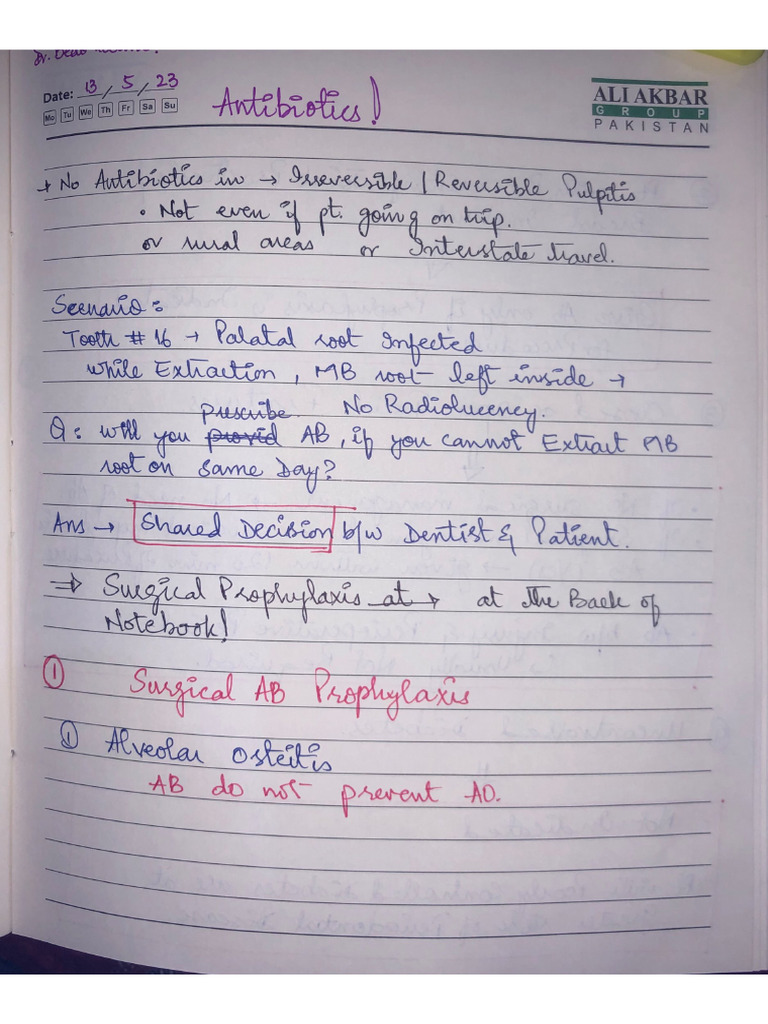 Date: 13 / 5 / 23
Mo Tu We Th Fr Sa Su
Antibiotics!
ALI AKBAR
GROUP
PAKISTAN
→ No Antibiotics in → Irreversible / Reversible Pulpitis
• Not even if pt. going on trip.
or rural areas or Interstate travel.
Scenario:
Tooth # 16 → Palatal root Infected
while Extraction, MB root left inside →
No Radiolucency.
Q: will you provid prescribe AB, if you cannot Extract MB
root on same Day?
Ans → Shared Decision b/w Dentist & Patient.
⇒ Surgical Prophylaxis at → at the Back of
Notebook!
① Surgical AB Prophylaxis
① Alveolar Osteitis
AB do not prevent AO.